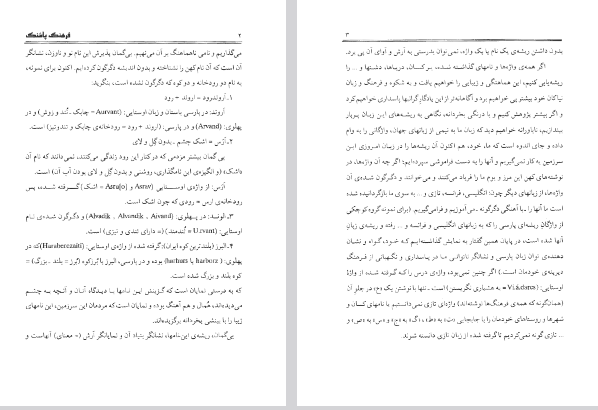 ۲
فرهنگ پاشنگ
می‌گذاریم و نامی ناهماهنگ بر آن می‌نهیم. بی‌گمان پذیرش این نام نو و ناوزن، نشانگر
آن است که آن نام کهن را نشناخته و بدون اندیشه دگرگون کرده‌ایم. اکنون برای نمونه،
به نام دو رودخانه و دو کوه که دگرگون نشده است، بنگرید:
۱ـ اروندرود = اروند + رود
اروند: در پارسی باستان و زبان اوستایی: (Aurvant = چابک ـ تُند و زوش) و در
پهلوی: (Arvand) و در پارسی: (اروند + رود = رودخانه‌ی چابک و تندوتیز) است.
۲ـ اَرَس = اشک چشم ـ بدون گِل و لای
بی گمان بیشتر مردمی که در کنار این رود زندگی می‌کنند، نمی دانند که نام آن
«اشک» (و انگیزه‌ی این نامگذاری، روشنی و بدون گِل و لای بودن آب آن) است.
اَرَس: از واژه‌ی اوستایی (Asru و = اشک) گرفته شده، پس
رودخانه‌ی ارس = رودی که چون اشک است.
۳ـ الوند: در پهلوی: و دگرگون شده‌ی نام
اوستایی: (U.rvant = تُندمند) (= دارای تندی و تیزی) است.
۴ـ البرز (بلندترین کوه ایران): گرفته شده از واژه‌ی اوستایی: (Haraberezaiti) که در
پهلوی: (harborz یا harburz) بوده و در پارسی، البرز یا بُرزکوه (بُرز = بلند ـ بزرگ) =
کوه بلند و بزرگ شده است.
که به درستی نمایان است که گزینش این نامها با دیدگاه آنان و آنچه به چشم
می‌دیده‌اند، همال و هم آهنگ بوده و نمایان است که مردمان این سرزمین، این نامهای
زیبا را با بینشی بخردانه برگزیده‌اند.
بی‌گمان، ریشه‌ی این نامها، نشانگر بنیاد آن و نمایانگر آرش (= معنای) آنهاست و
۳
بدون داشتن ریشه‌ی یک نام یا یک واژه، نمی‌توان بدرستی به آرش و آوای آن پی برد.
اگر همه‌ی واژه‌ها و نامهای گذاشته شده، بر کسان، دریاها، دشتها و ... را
ریشه‌یابی کنیم، این هماهنگی و زیبایی را خواهیم یافت و به شکوه و فرهنگ و زبان
نیاکان خود بیشتر پی خواهیم برد و آگاهانه‌تر از این یادگار گرانبها پاسداری خواهیم کرد
و اگر بیشتر پژوهش کنیم و با درنگی بخردانه، نگاهی به ریشه‌های این زبان پربار
بیندازیم، ناباورانه خواهیم دید که زبان ما به نیمی از زبانهای جهان، واژگانی را به وام
داده و جای اندوه است که ما، خود، هم اکنون آن ریشه‌ها را در زبان امروزی این
سرزمین به کار نمی‌گیریم و آنها را به دست فراموشی سپرده‌ایم؛ اگر چه آن واژه‌ها، در
نوشته‌های کهن این مرز و بوم ما را فریاد می‌کنند و می‌خوانند. و دگرگون شده‌ی آن
واژه‌ها، از زبانهای دیگر چون: انگلیسی، فرانسه، تازی و ... به سوی ما بازگردانیده شده
است، ما آنها را ـ با آهنگی دگرگونه ـ می‌آموزیم و فرامی‌گیریم. (برای نمونه گروه کوچکی
از واژگان ریشه‌ای پارسی را که به زبانهای انگلیسی و فرانسه و ... رفته و ریشه‌ی زبانِ
آنها شده است، در پایان همین گفتار به نمایش گذاشته‌ایم که خود، گواه و نشان
دهنده‌ی توان زبان پارسی و نشانگر ناتوانی ما در پاسداری و نگهبانی از فرهنگ
دیرینه‌ی خودمان است.) اگر چنین نمی‌بود، واژه‌ی درس را که گرفته شده از واژهٔ
اوستایی: ( = به هشیاری نگریستن) است ـ تنها با نوشتن یک «ع» در جلو آن
(همانگونه که همه‌ی فرهنگها نوشته‌اند) واژه‌ای تازی نمی‌دانستیم یا نامهای کسان و
شهرها و روستاهای خودمان را با جابجایی «ت» به «ط» ، «گ» به «ج» و «س» به «ص» و
... تازی گونه نمی‌کردیم تا گرفته شده از زبان تازی دانسته شوند.